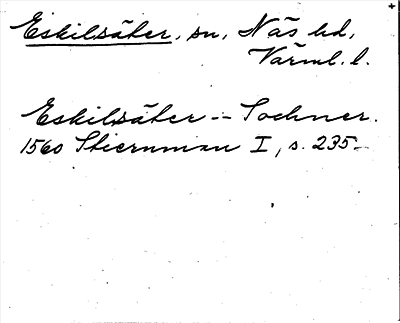 Eskilsäter, sn, Näs hd,
Värml. l.
Eskilsäter -- Sochner.
1560 Stiernman I, s. 235